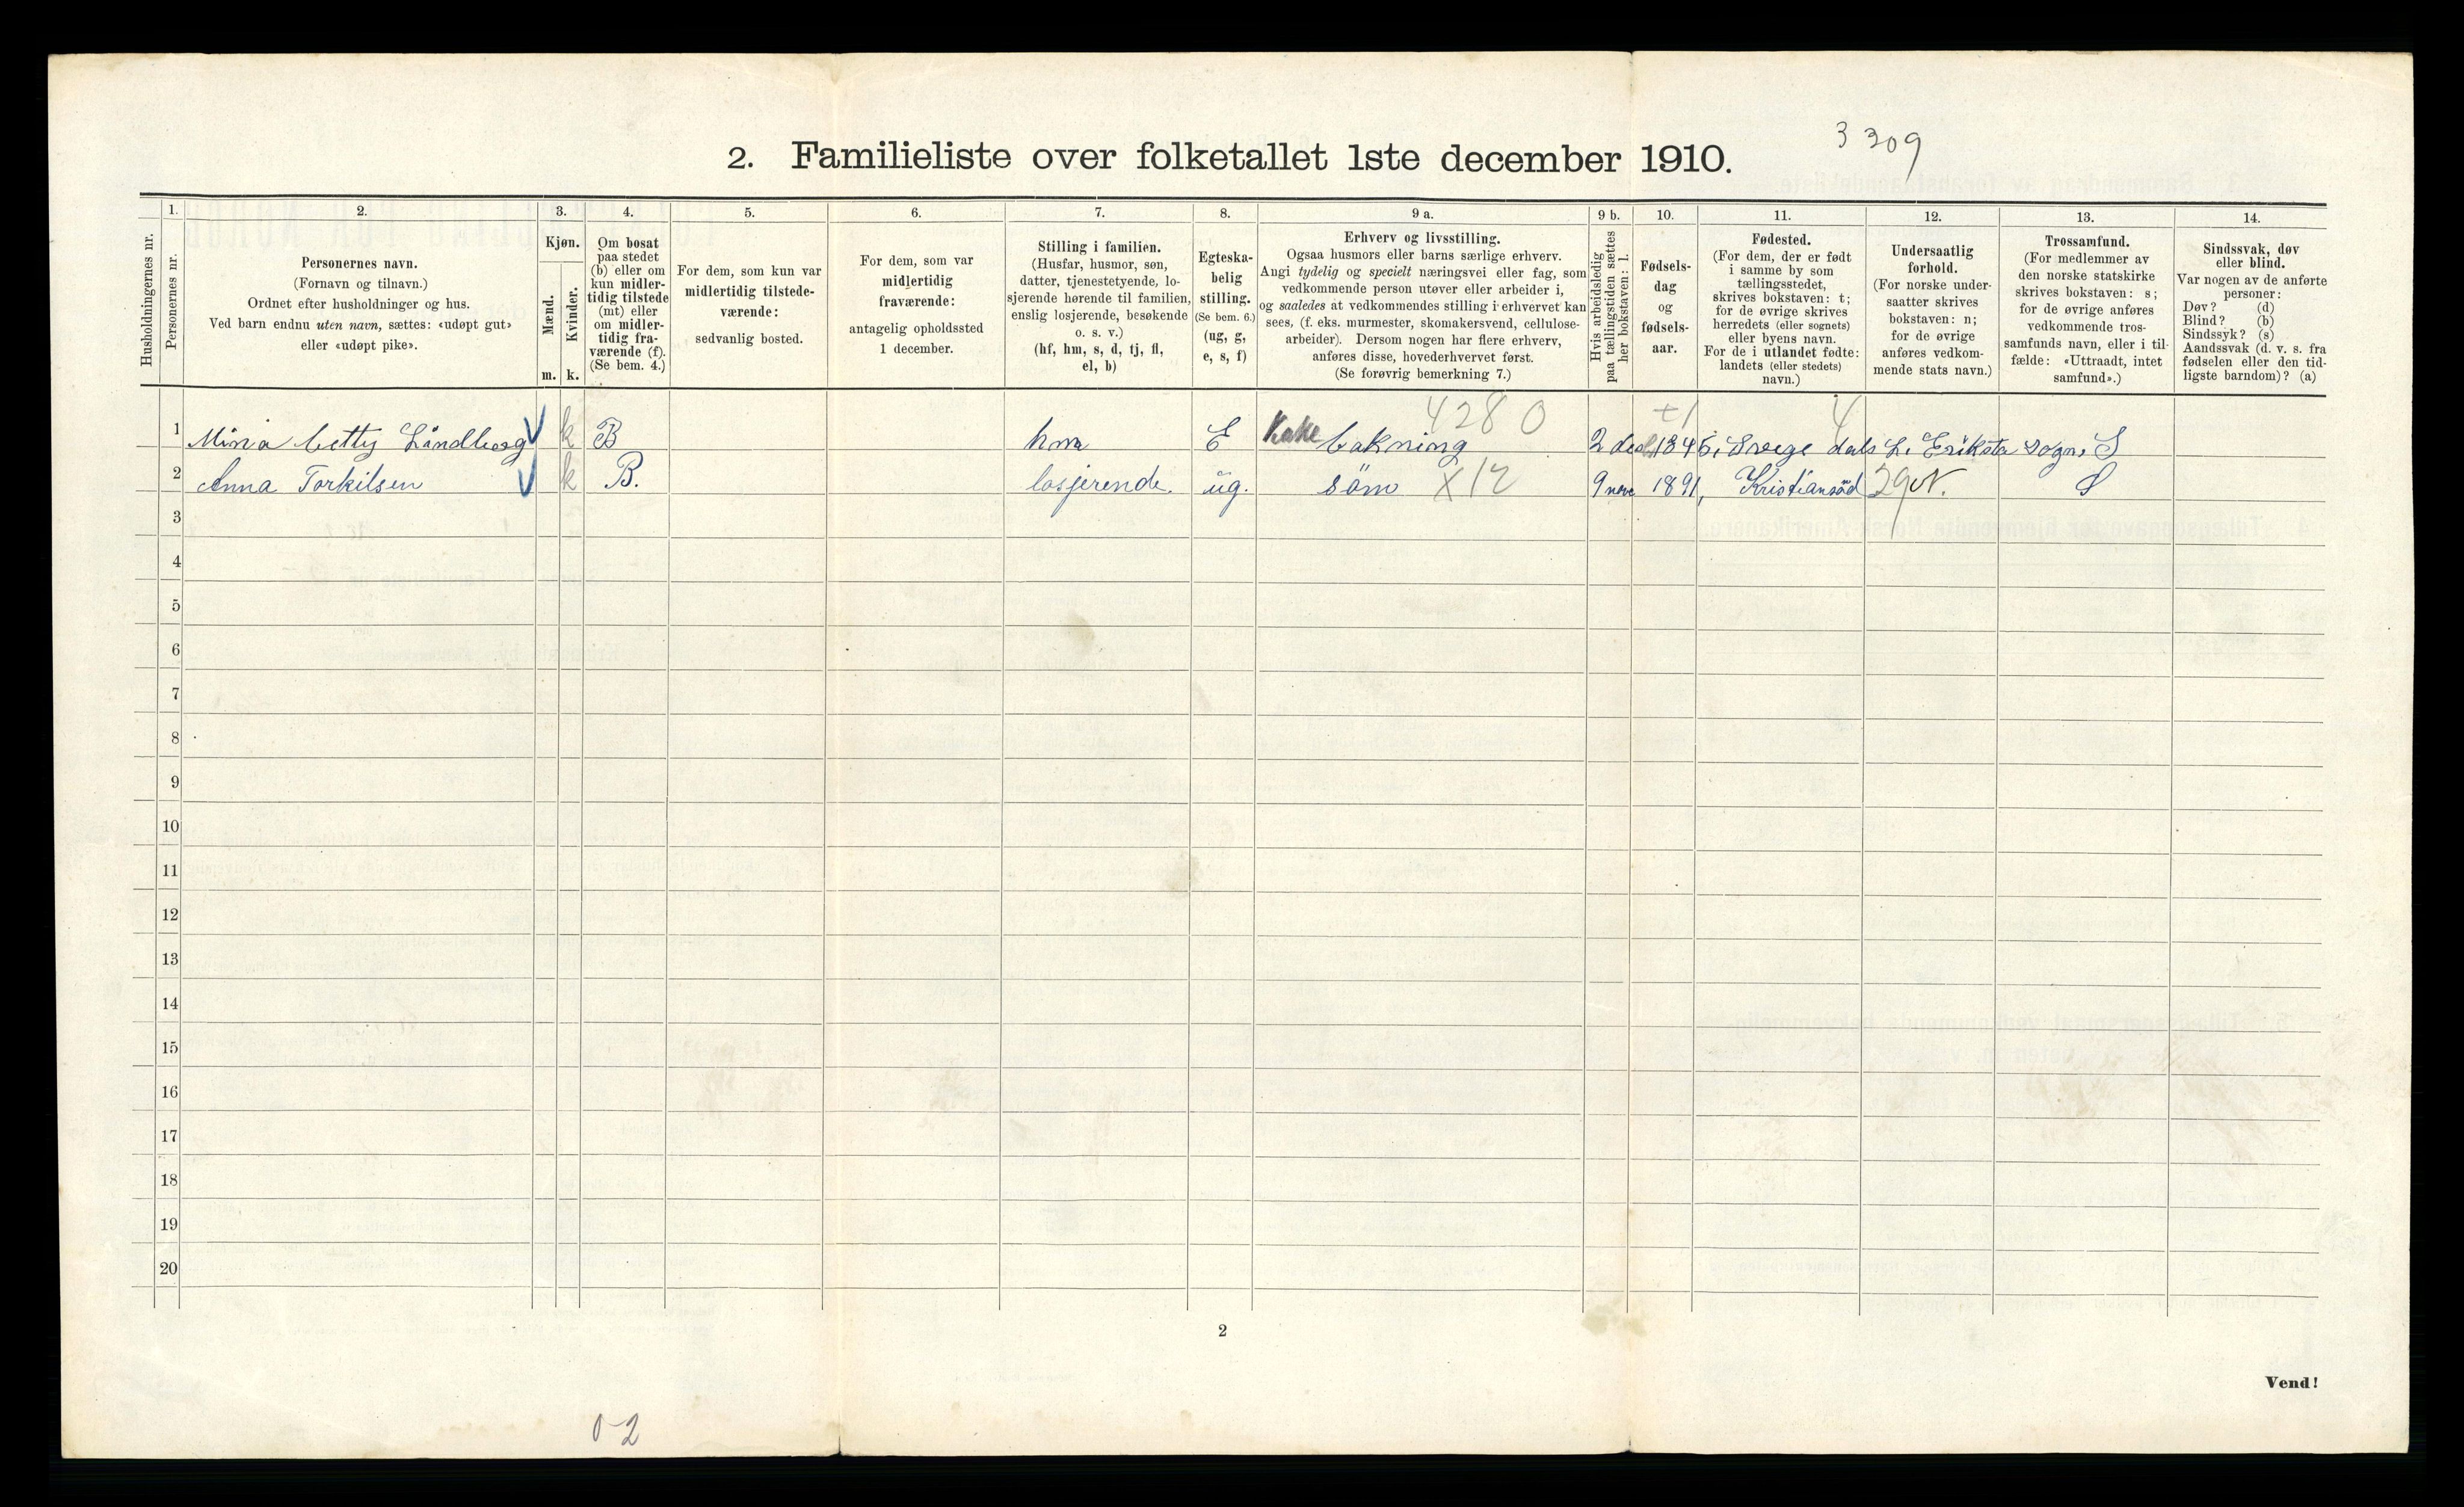 3 309
2. Familieliste over folketallet 1ste december 1910.
Husholdningernes nr.
1. Personernes nr.
2. Personernes navn. (Fornavn og tilnavn.) Ordnet efter husholdninger og hus. Ved barn endnu uten navn, sættes: «udøpt gut» eller «udøpt pike».
3. Kjøn. Mænd. m. Kvinder. k.
4. Om bosat paa stedet (b) eller om kun midlertidig tilstede (mt) eller om midlertidig fraværende (f). (Se bem. 4.)
5. For dem, som kun var midlertidig tilstedeværende: sedvanlig bosted.
6. For dem, som var midlertidig fraværende: antagelig opholdssted 1 december.
7. Stilling i familien. (Husfar, husmor, søn, datter, tjenestetyende, losjerende hørende til familien, enslig losjerende, besøkende o. s. v.) (hf, hm, s, d, tj, fl, el, b)
8. Egteskabelig stilling. (Se bem. 6.) (ug, g, e, s, f)
9 a. Erhverv og livsstilling. Ogsaa husmors eller barns særlige erhverv. Angi tydelig og specielt næringsvei eller fag, som vedkommende person utøver eller arbeider i, og saaledes at vedkommendes stilling i erhvervet kan sees, (f. eks. murmester, skomakersvend, cellulosearbeider). Dersom nogen har flere erhverv, anføres disse, hovederhvervet først. (Se forøvrig bemerkning 7.)
9 b. Hvis arbeidsledig paa tællingstiden sættes her bokstaven: l.
10. Fødselsdag og fødselsaar.
11. Fødested. (For dem, der er født i samme by som tællingsstedet, skrives bokstaven: t; for de øvrige skrives herredets (eller sognets) eller byens navn. For de i utlandet fødte: landets (eller stedets) navn.)
12. Undersaatlig forhold. (For norske undersaatter skrives bokstaven: n; for de øvrige anføres vedkommende stats navn.)
13. Trossamfund. (For medlemmer av den norske statskirke skrives bokstaven: s; for de øvrige anføres vedkommende trossamfunds navn, eller i tilfælde: «Uttraadt, intet samfund».)
14. Sindssvak, døv eller blind. Var nogen av de anførte personer: Døv? (d) Blind? (b) Sindssyk? (s) Aandssvak (d. v. s. fra fødselen eller den tidligste barndom)? (a)
4280 4
1 Mina Betty Lindberg k B hm E Kake bakning 2 1845, Svege dals L. Eriksta sogn, S
2 Anna Torkilsen k B. losjerende. ug. söm X12 9 nov 1891, Kristiansäd 29 N. S
3
4
5
6
7
8
9
10
11
12
13
14
15
16
17
18
19
20
2
Vend!
0-2